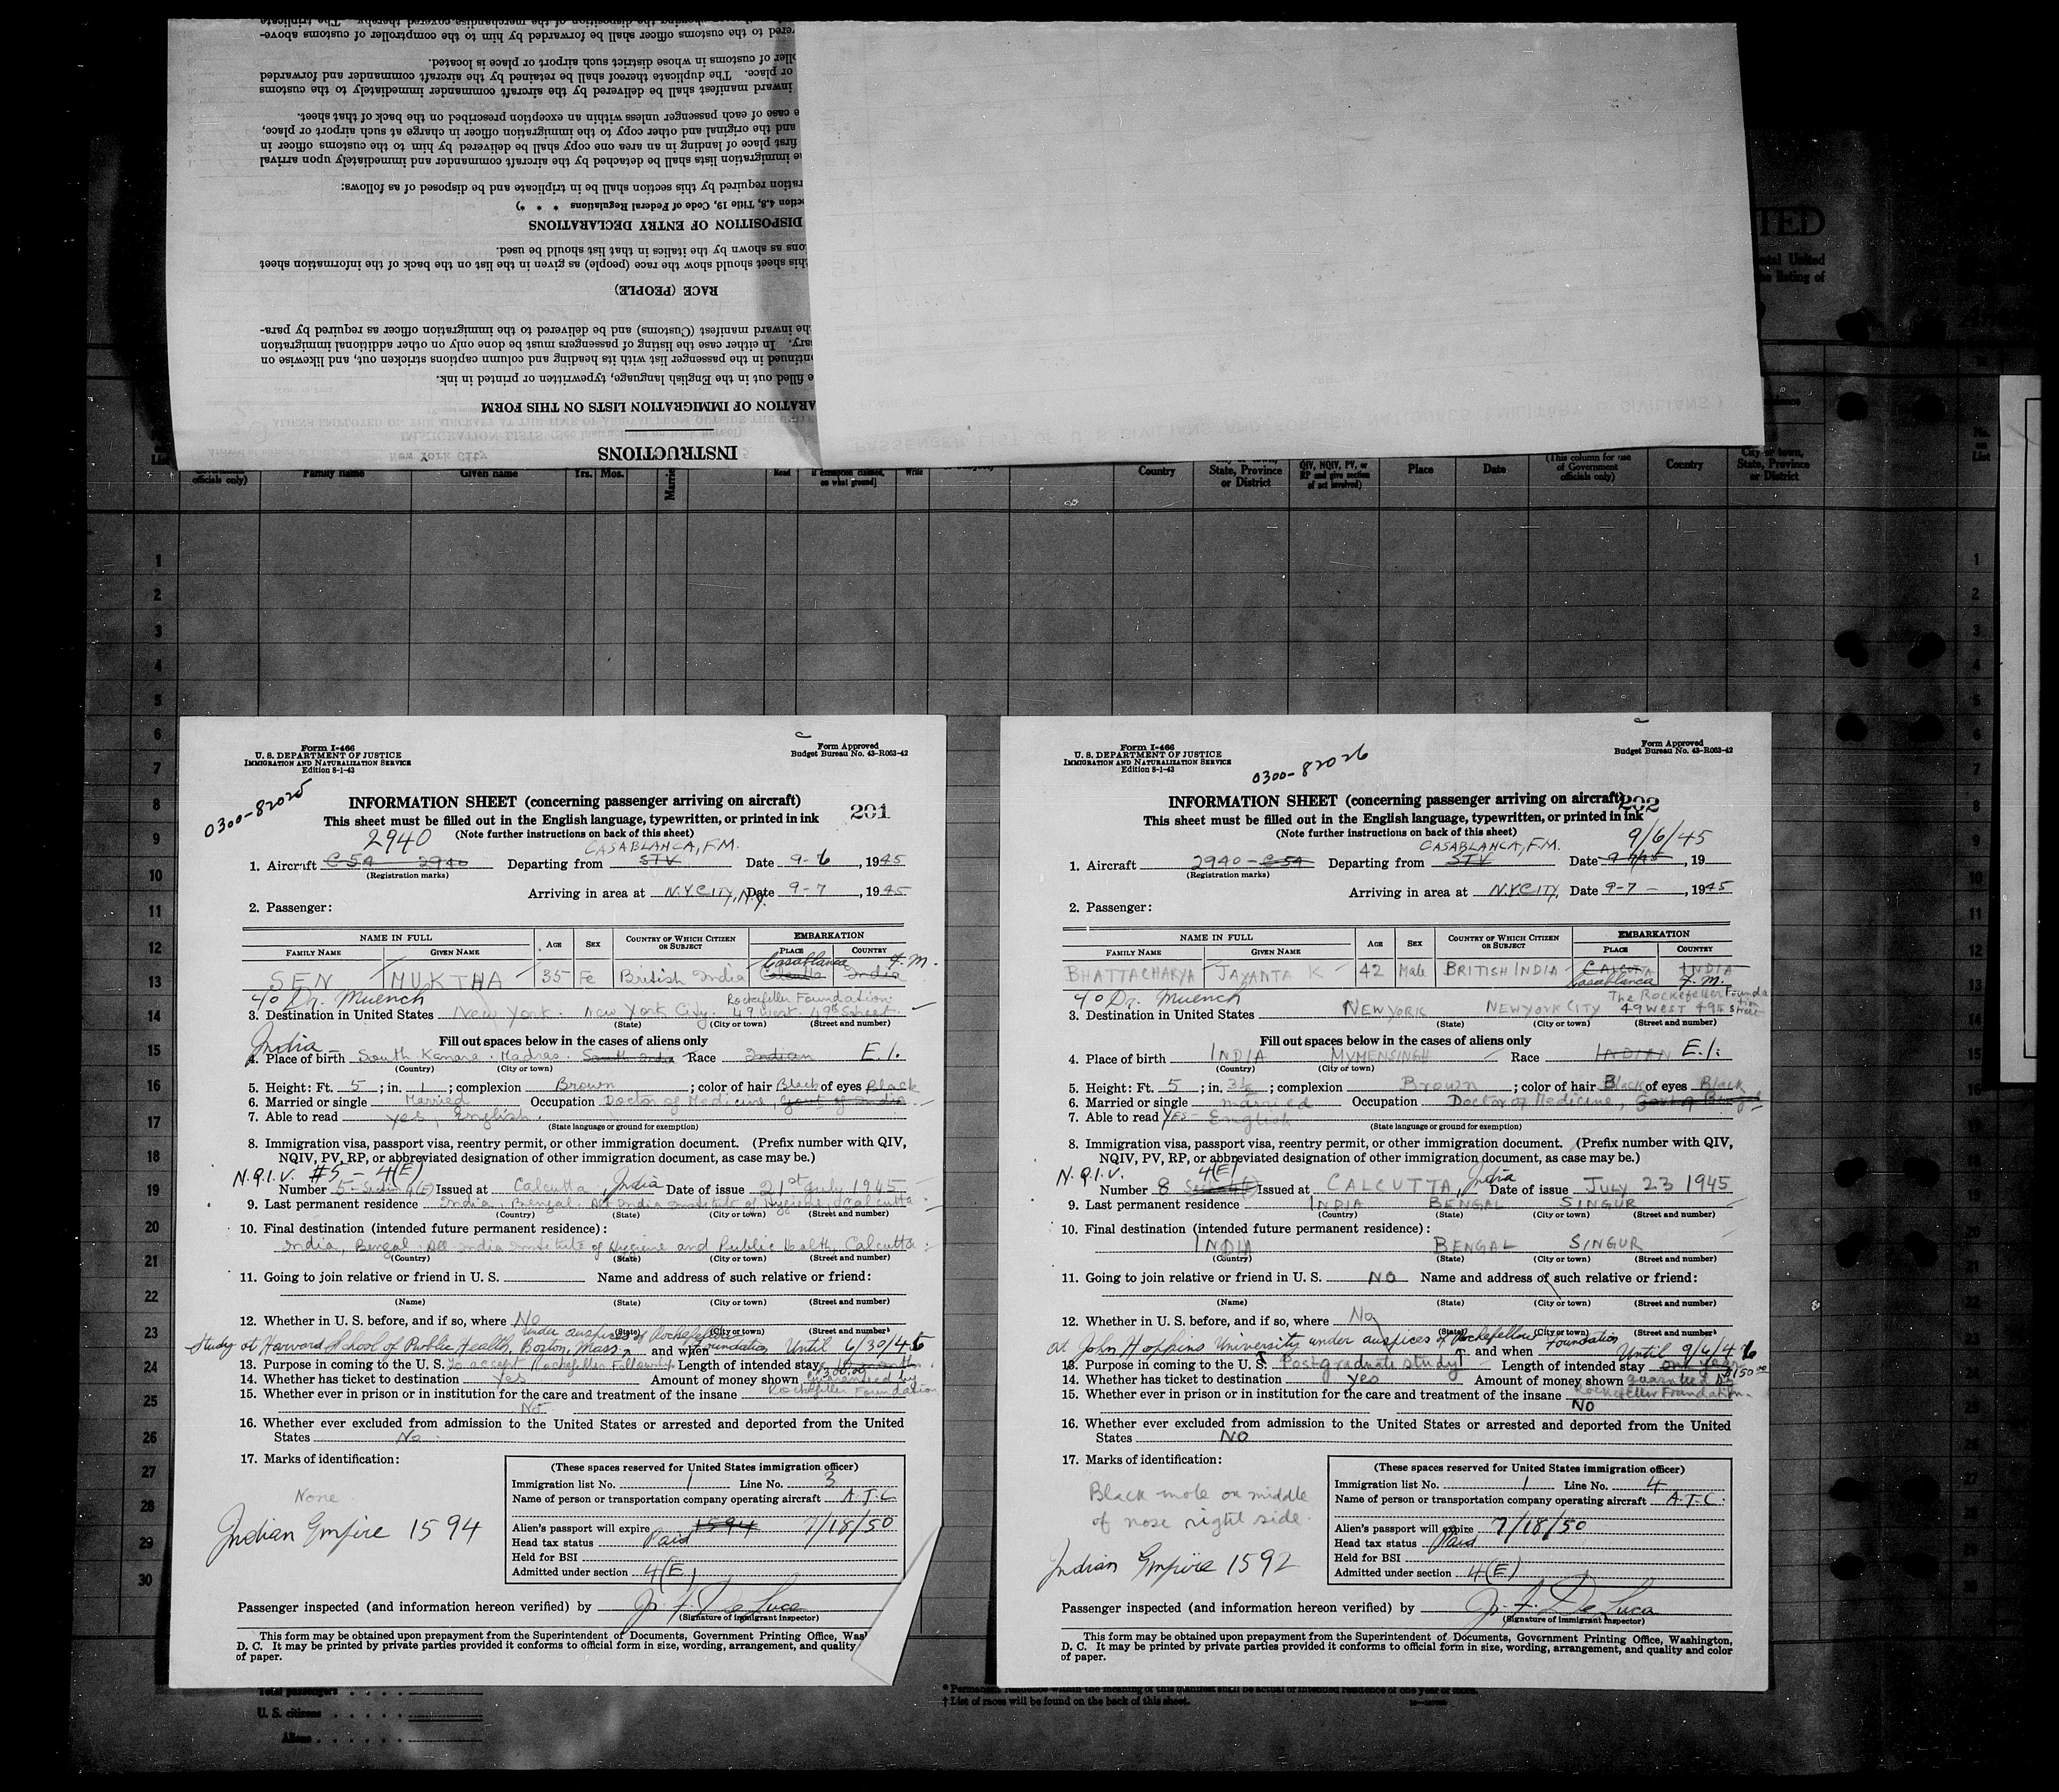 INSTRUCTIONS
ARATION OF IMMIGRATION LISTS ON THIS FORM
e filled out in the English language, typewritten or printed in ink.
ontinued in the passenger list with its heading and column captions stricken out, and likewise on
ary. In either case the listing of passengers must be done only on other additional immigration
he inward manifest (Customs) and be delivered to the immigration officer as required by para-
RACE (PEOPLE)
this sheet should show the race (people) as given in the list on the back of the information sheet
ons as shown by the italics in that list should be used.
DISPOSITION OF ENTRY DECLARATIONS
ction 4.8, Title 19, Code of Federal Regulations * * *)
ration required by this section shall be in triplicate and be disposed of as follows:
e immigration lists shall be detached by the aircraft commander and immediately upon arrival
first place of landing in an area one copy shall be delivered by him to the customs officer in
and the original and other copy to the immigration officer in charge at such airport or place,
e case of each passenger unless within an exception prescribed on the back of that sheet.
inward manifest shall be delivered by the aircraft commander immediately to the customs
or place. The duplicate thereof shall be retained by the aircraft commander and forwarded
ller of customs in whose district such airport or place is located.
red to the customs officer shall be forwarded by him to the comptroller of customs above-
showing the disposition of the merchandise covered thereby. The triplicate
Family name Given name Yrs. Mos. Read Write Country State, Province or District Place Date Country State, Province or District
Form I-466
U. S. DEPARTMENT OF JUSTICE
IMMIGRATION AND NATURALIZATION SERVICE
Edition 8-1-43
Form Approved
Budget Bureau No. 43-R063-42
0300-82025
INFORMATION SHEET (concerning passenger arriving on aircraft) 201
This sheet must be filled out in the English language, typewritten, or printed in ink
(Note further instructions on back of this sheet)
2940 CASABLANCA, F.M.
1. Aircraft C-54 2940 Departing from STV Date 9-6, 1945
(Registration marks)
Arriving in area at N.Y.CITY, N.Y. Date 9-7, 1945
2. Passenger:
NAME IN FULL AGE SEX COUNTRY OF WHICH CITIZEN OR SUBJECT EMBARKATION
FAMILY NAME GIVEN NAME PLACE COUNTRY
Casablanca F.M.
SEN MUKTHA 35 Fe British India Calcutta India
c/o Dr. Muench Rockefeller Foundation
3. Destination in United States New York. New York City. 49 West. 49th Street.
(State) (City or town) (Street and number)
Fill out spaces below in the cases of aliens only
India
4. Place of birth South Kanara. Madras. South India Race Indian E.I.
(Country) (City or town)
5. Height: Ft. 5; in. 1; complexion Brown; color of hair Black of eyes Black
6. Married or single Married Occupation Doctor of Medicine, Govt of India
7. Able to read yes, English.
(State language or ground for exemption)
8. Immigration visa, passport visa, reentry permit, or other immigration document. (Prefix number with QIV,
NQIV, PV, RP, or abbreviated designation of other immigration document, as case may be.)
N.Q.I.V. #5 - 4(E)
Number 5-Section 4(E) Issued at Calcutta, India Date of issue 21st July 1945
9. Last permanent residence India, Bengal. All India Institute of Hygiene, Calcutta
(Country) (State) (City or town) (Street and number)
10. Final destination (intended future permanent residence):
India, Bengal, All India Institute of Hygiene and Public Health, Calcutta
(Country) (State) (City or town) (Street and number)
11. Going to join relative or friend in U. S. Name and address of such relative or friend:
(Name) (State) (City or town) (Street and number)
12. Whether in U. S. before, and if so, where No
(State) (City or town) (Street and number)
under auspices of Rockefeller
Study at Harvard School of Public Health, Boston, Mass. and when Foundation Until 6/30/46
13. Purpose in coming to the U. S. To accept Rockefeller Fellowship Length of intended stay
14. Whether has ticket to destination Yes Amount of money shown guaranteed by
15. Whether ever in prison or in institution for the care and treatment of the insane Rockefeller Foundation
No
16. Whether ever excluded from admission to the United States or arrested and deported from the United
States No
17. Marks of identification:
None
Indian Empire 1594
(These spaces reserved for United States immigration officer)
Immigration list No. 1 Line No. 3
Name of person or transportation company operating aircraft A.T.C
Alien's passport will expire 1594 7/18/50
Head tax status Paid
Held for BSI
Admitted under section 4(E)
Passenger inspected (and information hereon verified) by J. F. De Luca
(Signature of immigrant inspector)
This form may be obtained upon prepayment from the Superintendent of Documents, Government Printing Office, Wash
D. C. It may be printed by private parties provided it conforms to official form in size, wording, arrangement, and quality
of paper.
Form I-466
U. S. DEPARTMENT OF JUSTICE
IMMIGRATION AND NATURALIZATION SERVICE
Edition 8-1-43
Form Approved
Budget Bureau No. 43-R063-42
0300-82026
INFORMATION SHEET (concerning passenger arriving on aircraft) 202
This sheet must be filled out in the English language, typewritten, or printed in ink
(Note further instructions on back of this sheet)
CASABLANCA, F.M. 9/6/45
1. Aircraft 2940-C-54 Departing from STV Date 9/4/45, 19
(Registration marks)
Arriving in area at N.Y.CITY, Date 9-7-, 1945
2. Passenger:
NAME IN FULL AGE SEX COUNTRY OF WHICH CITIZEN OR SUBJECT EMBARKATION
FAMILY NAME GIVEN NAME PLACE COUNTRY
BHATTACHARYA JAYANTA K 42 Male BRITISH INDIA CALCUTTA INDIA
Casablanca F.M.
c/o Dr. Muench The Rockefeller Foundation
3. Destination in United States NEWYORK NEWYORK CITY 49 WEST 49th Street
(State) (City or town) (Street and number)
Fill out spaces below in the cases of aliens only
4. Place of birth INDIA MYMENSINGH Race INDIAN E.I.
(Country) (City or town)
5. Height: Ft. 5; in. 3½; complexion Brown; color of hair Black of eyes Black
6. Married or single married Occupation Doctor of Medicine, Govt of Bengal
7. Able to read Yes- English
(State language or ground for exemption)
8. Immigration visa, passport visa, reentry permit, or other immigration document. (Prefix number with QIV,
NQIV, PV, RP, or abbreviated designation of other immigration document, as case may be.)
N.Q.I.V. 4(E)
Number 8 Issued at CALCUTTA, India Date of issue JULY 23 1945
9. Last permanent residence INDIA BENGAL SINGUR
(Country) (State) (City or town) (Street and number)
10. Final destination (intended future permanent residence):
INDIA BENGAL SINGUR
(Country) (State) (City or town) (Street and number)
11. Going to join relative or friend in U. S. NO Name and address of such relative or friend:
(Name) (State) (City or town) (Street and number)
12. Whether in U. S. before, and if so, where No
(State) (City or town) (Street and number)
at John Hopkins University under auspices of Rockefeller Foundation and when Until 9/6/46
13. Purpose in coming to the U. S. Postgraduate study Length of intended stay one year
14. Whether has ticket to destination yes Amount of money shown guaranteed by $150.00
15. Whether ever in prison or in institution for the care and treatment of the insane Rockefeller Foundation
NO
16. Whether ever excluded from admission to the United States or arrested and deported from the United
States NO
17. Marks of identification:
Black mole on middle
of nose right side.
Indian Empire 1592
(These spaces reserved for United States immigration officer)
Immigration list No. 1 Line No. 4
Name of person or transportation company operating aircraft A.T.C.
Alien's passport will expire 7/18/50
Head tax status Paid
Held for BSI
Admitted under section 4(E)
Passenger inspected (and information hereon verified) by J. F. De Luca
(Signature of immigrant inspector)
This form may be obtained upon prepayment from the Superintendent of Documents, Government Printing Office, Washington,
D. C. It may be printed by private parties provided it conforms to official form in size, wording, arrangement, and quality and color
of paper.
Total passengers
U. S. citizens
Aliens
* Permanent residence within the meaning of this manifest shall be actual or intended residence of one year or more.
† List of races will be found on the back of this sheet.